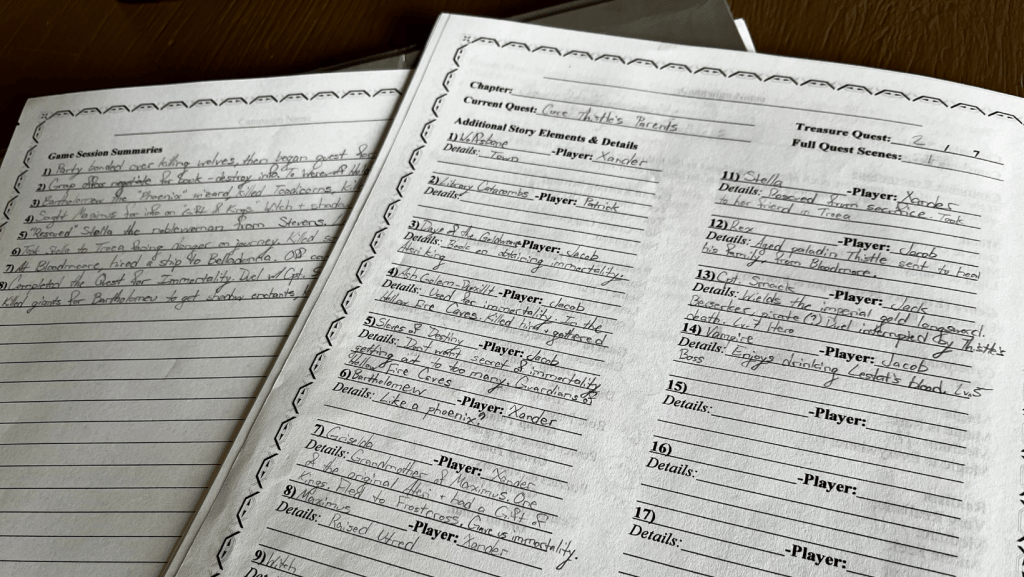 Game Session Summaries
1) Party bonded over killing wolves, then began quest for
2) Camp, offer negotiate for book - destroy into To Voice of
3) Bartholomew the "Phoenix" wizard, killed Toadicorns,
4) Sought Maximus for info on "Gift of Kings" Witch + shadow
5) "Rescued" Stella the noblewoman from Stevens,
6) Took Stella to Troea facing danger on journey. Killed
7) At Bloodmoore, hired a ship to Belladonia.
8) Completed the Quest for Immortality. Duel w/ Cpt. S
Killed giants for Bartholomew to get shadow enchants,
Chapter:
Current Quest: Cure Thistle's Parents
Additional Story Elements & Details
1) -Player: Xander
Details: Town
2) Library Catacombs -Player: Patrick
Details:
3) Days of the -Player: Jacob
Details: Book on obtaining immortality.
king
4) Ash Golem- -Player: Jacob
Details: Used for immortality. In the
Hollow Fire Caves. Killed him + gathered
5) Slaves of Destiny -Player: Jacob
Details: Don't want secret of immortality
getting out to too many. Guardians of
Hollow Fire Caves
6) Bartholomew -Player: Xander
Details: Like a phoenix?
7) Griselda -Player: Xander
Details: Grandmother of Maximus. One
of the original + had a Gift of
Kings. Fled to Frostcross. Gave us immortality.
8) Maximus -Player: Xander
Details: Raised Wired
9) Witch
Treasure Quest: 2 , 7
Full Quest Scenes: 1
11) Stella -Player: Xander
Details: Rescued from sacrifice. Took
to her friend in Troea
12) Rex -Player: Jacob
Details: Aged paladin Thistle sent to heal
his family from Bloodmoore.
13) Cpt. Smack -Player: Jack
Details: Wields the imperial gold longsword.
pirate (?) Duel interrupted by Thistle's
death. Lv. 7 Hero
14) Vampire -Player: Jacob
Details: Enjoys drinking Leslat's blood. Lv. 5
Boss
15) -Player:
Details:
16) -Player:
Details:
17) -Player:
Details: